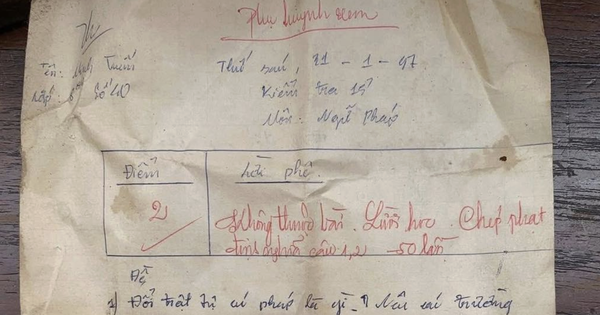 Phụ huynh xem
Thứ sáu, 31 - 1 - 97
Tên: Minh Tuấn
Kiểm tra 15'
Lớp: Số 40
Môn: Ngữ Pháp
Điểm
Lời phê
2
Không thuộc bài. Lười học. Chép phạt
định nghĩa câu 1, 2 50 lần
Đề
1) Đổi trật tự cú pháp là gì? Nêu các trường